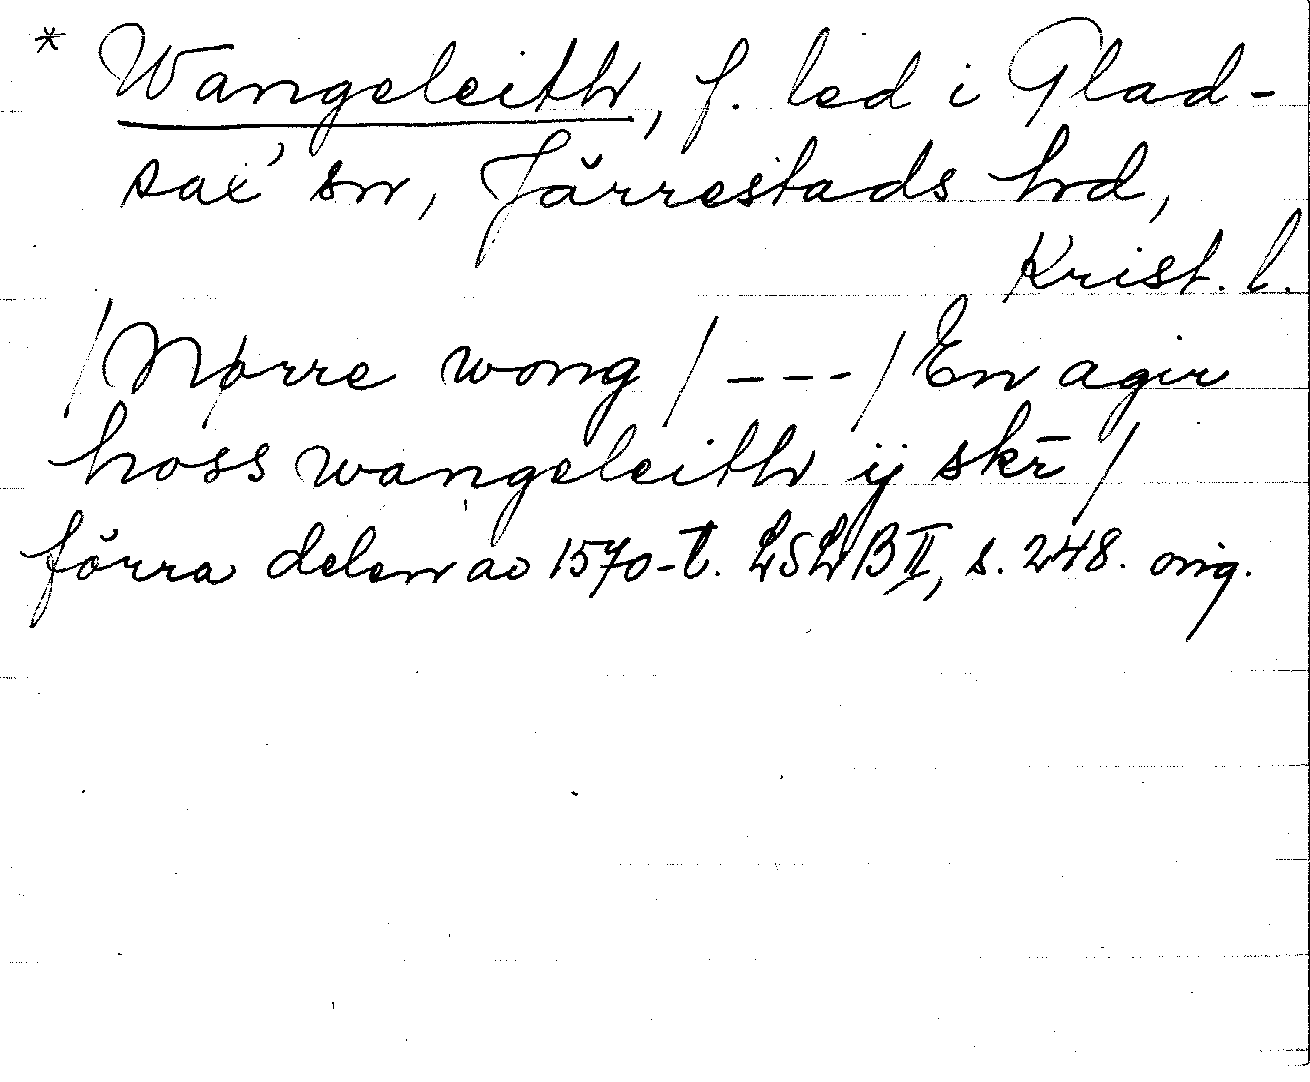 * Wangeleith, f. led i Glad-
sax' sn, Järrestads hd,
Krist. l.
/Nørre wong/ ---/En agir
hoss wangeleith ij skr̄/
förra delen av 1570-t. LSLB II, s. 248. orig.